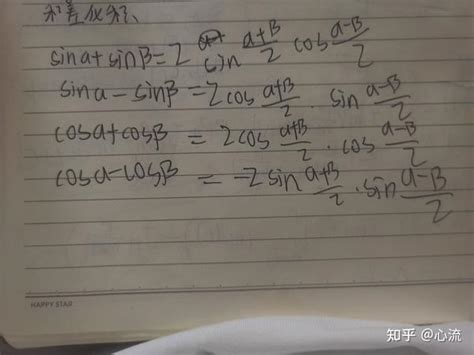 和差化积、
sinα+sinβ=2 sin α+β/2 cos α-β/2
sinα-sinβ=2cos α+β/2 · sin α-β/2
cosα+cosβ = 2cos α+β/2 · cos α-β/2
cosα-cosβ = -2sin α+β/2 · sin α-β/2
HAPPY STAR
知乎 @心流